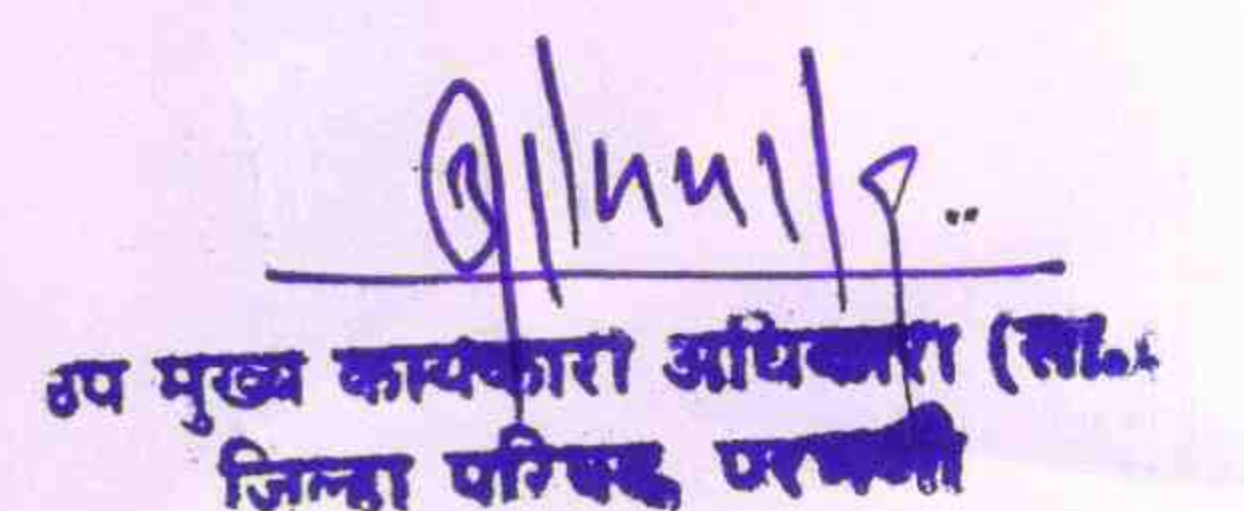 उप मुख्य कार्यकारी अधिकारी (सा.
जिल्हा परिषद परभणी